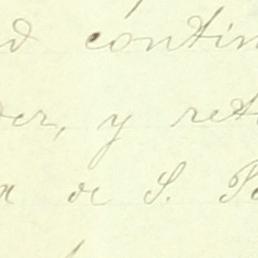 d contin
der, y ret
a de S. Pa